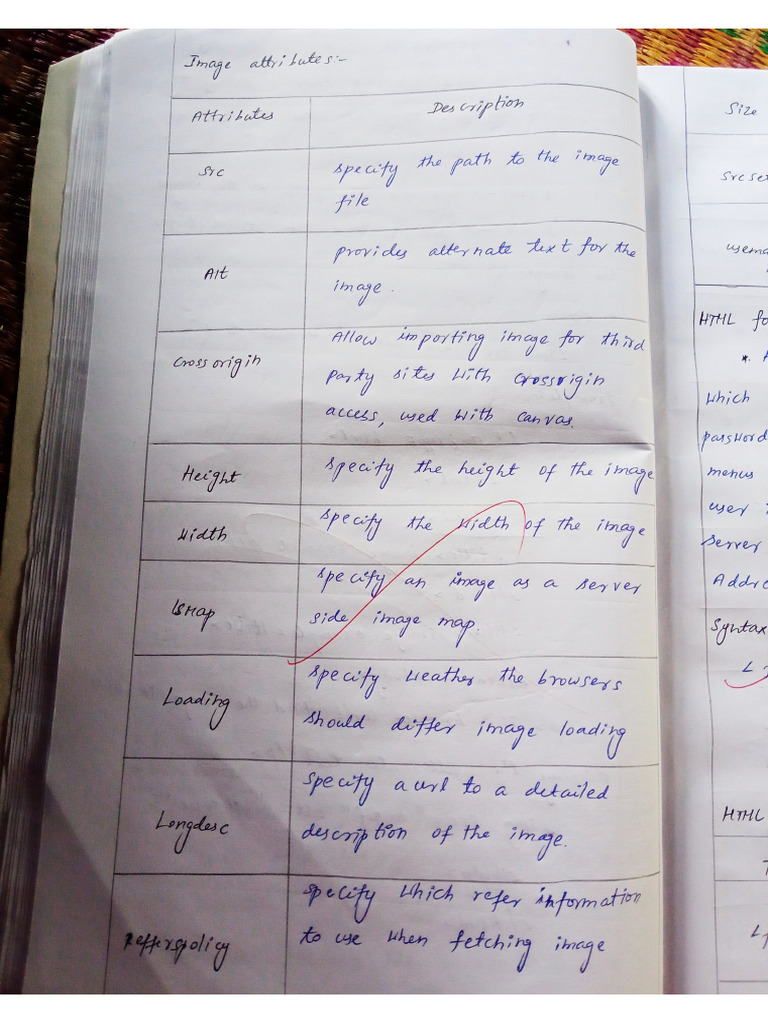 Image attributes:-
Attributes
Description
Src
specify the path to the image
file
Alt
provides alternate text for the
image.
Crossorigin
Allow importing image for third
party sites with crossrigin
access, used with canvas.
Height
specify the height of the image
Width
specify the width of the image
ISMap
specify an image as a server
side image map.
Loading
specify weather the browsers
should differ image loading
Longdesc
specify a url to a detailed
description of the image.
Refferspolicy
specify which refer information
to use when fetching image
Size
Srcse
usema
HTML fo
which
password
menus
user
server
Addre
Syntax
HTML